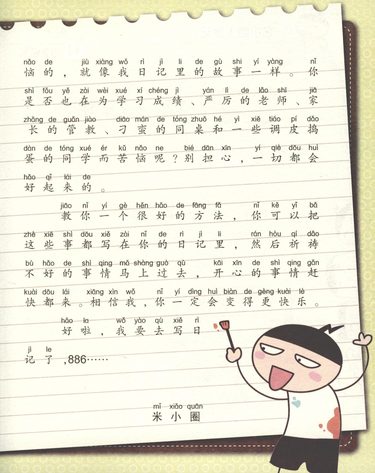 nǎo de jiù xiàng wǒ rì jì lǐ de gù shi yí yàng nǐ
恼的，就像我日记里的故事一样。你
shì fǒu yě zài wèi xué xí chéng jì yán lì de lǎo shī jiā
是否也在为学习成绩、严厉的老师、家
zhǎng de guǎn jiào diāo mán de tóng zhuō hé yì xiē tiáo pí dǎo
长的管教、刁蛮的同桌和一些调皮捣
dàn de tóng xué ér kǔ nǎo ne bié dān xīn yí qiè dōu huì
蛋的同学而苦恼呢？别担心，一切都会
hǎo qǐ lái de
好起来的。
jiāo nǐ yí gè hěn hǎo de fāng fǎ nǐ kě yǐ bǎ
教你一个很好的方法，你可以把
zhè xiē shì dōu xiě zài nǐ de rì jì lǐ rán hòu qí dǎo
这些事都写在你的日记里，然后祈祷
bù hǎo de shì qing mǎ shàng guò qù kāi xīn de shì qing gǎn
不好的事情马上过去，开心的事情赶
kuài dōu lái xiāng xìn wǒ nǐ yí dìng huì biàn de gèng kuài lè
快都来。相信我，你一定会变得更快乐。
hǎo la wǒ yào qù xiě rì
好啦，我要去写日
jì le
记了，886……
mǐ xiǎo quān
米小圈